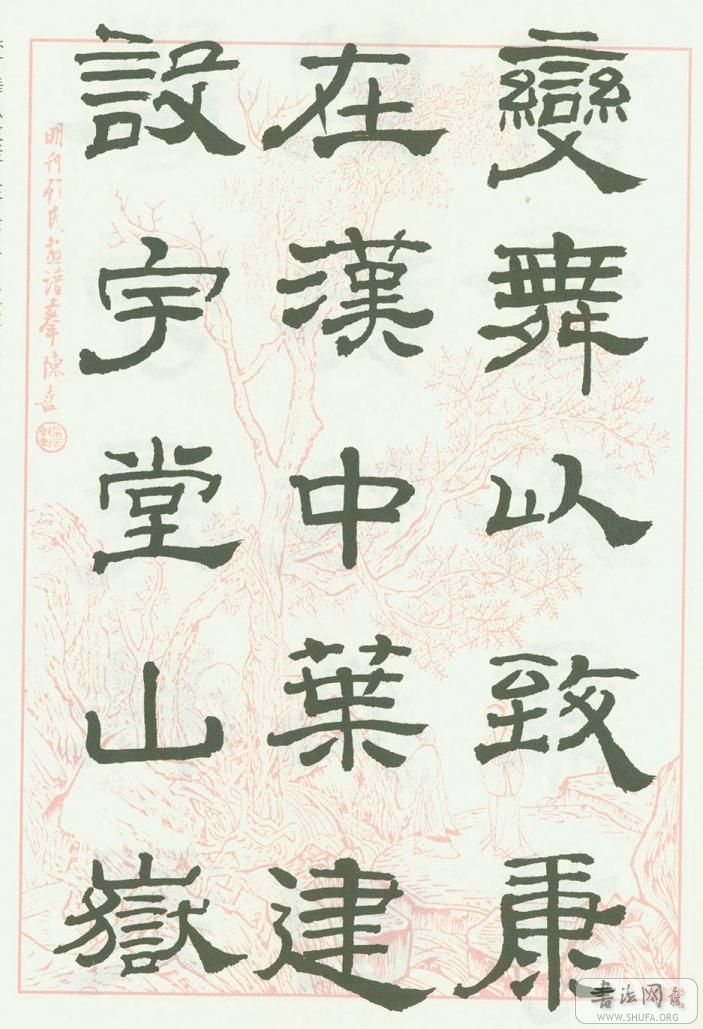 變舞以致康
在漢中葉建
設宇堂山嶽
明刊顧氏畫譜摹陳喜
書法网
WWW.SHUFA.ORG